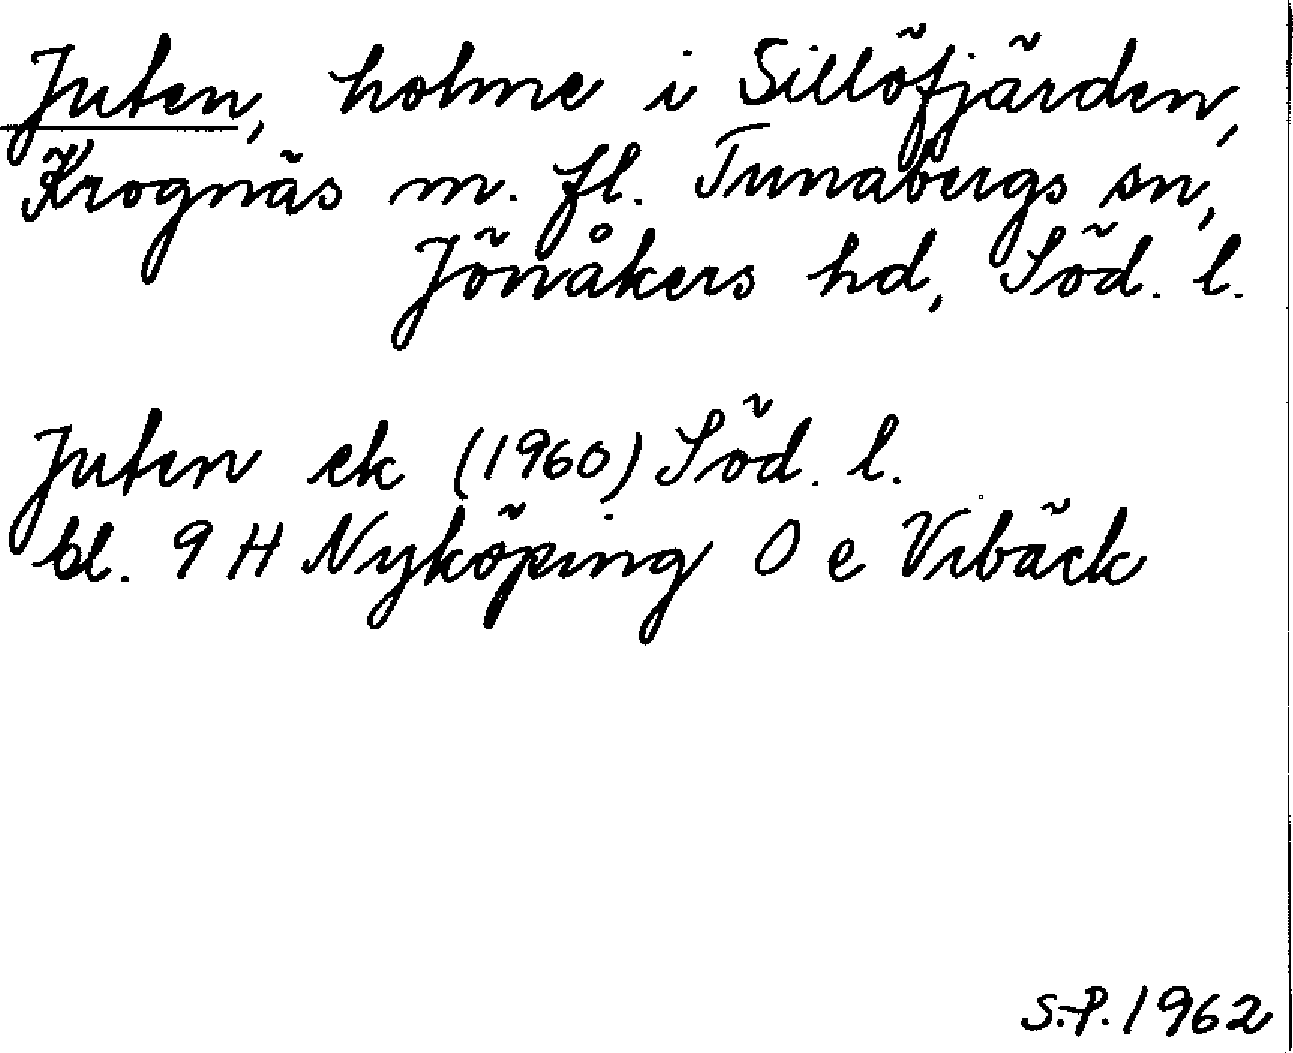 Juten, holme i Sillöfjärden,
Krognäs m. fl. Tunabergs sn,
Jönåkers hd, Söd. l.
Juten ek (1960) Söd. l.
bl. 9 H Nyköping O e Vrbäck
S.P. 1962